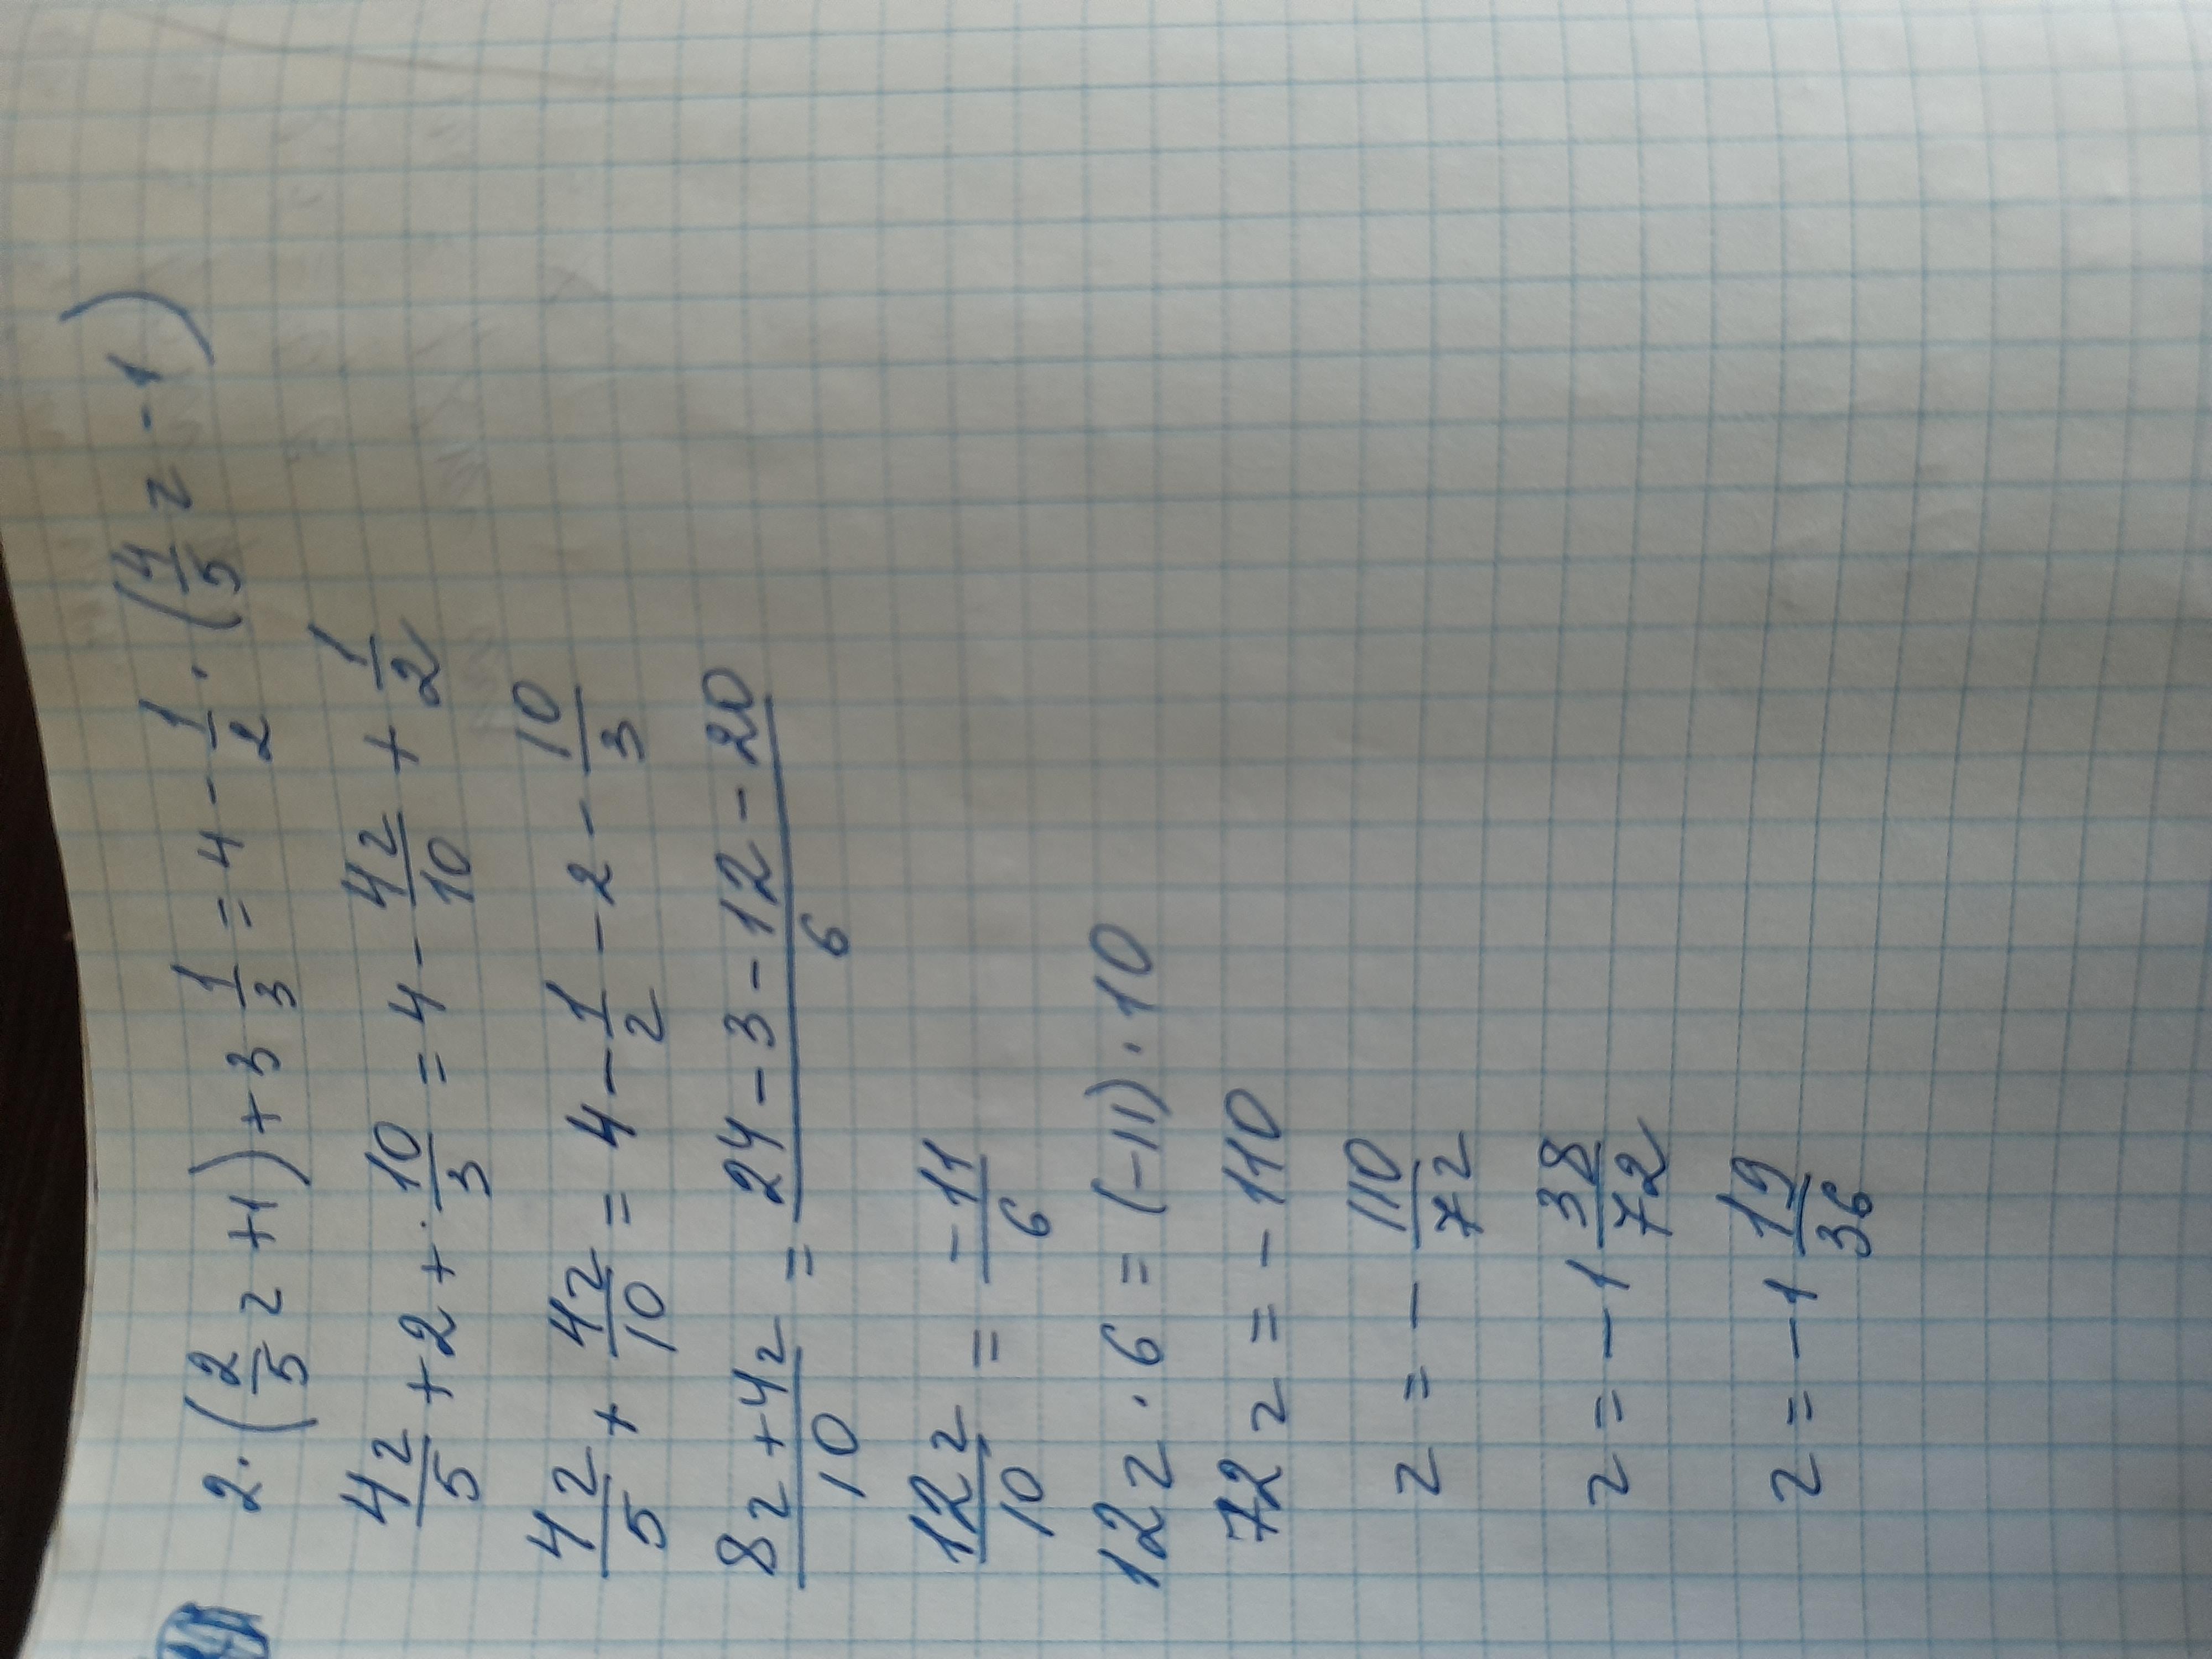 2·(2/5 z+1)+3 1/3=4-1/2·(4/5 z-1)
4z/5+2+·10/3=4-4z/10+1/2
4z/5+4z/10=4-1/2-2-10/3
8z+4z/10=24-3-12-20/6
12z/10=-11/6
12z·6=(-11)·10
72z=-110
z=-110/72
z=-1 38/72
z=-1 19/36